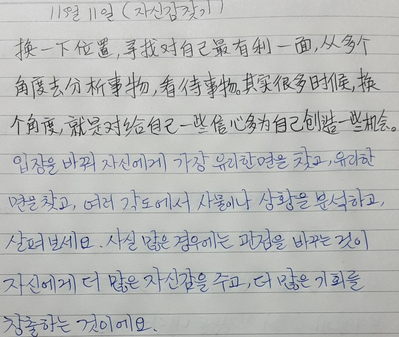 11월 11일 (자신감찾기)
换一下位置,寻找对自己最有利一面,从多个
角度去分析事物,看待事物。其实很多时候,换
个角度,就是对给自己一些信心多为自己创造一些机会。
입장을 바꿔 자신에게 가장 유리한 면을 찾고, 유리한
면을 찾고, 여러 각도에서 사물이나 상황을 분석하고,
살펴보세요. 사실 많은 경우에는 관점을 바꾸는 것이
자신에게 더 많은 자신감을 주고, 더 많은 기회를
창출하는 것이에요.